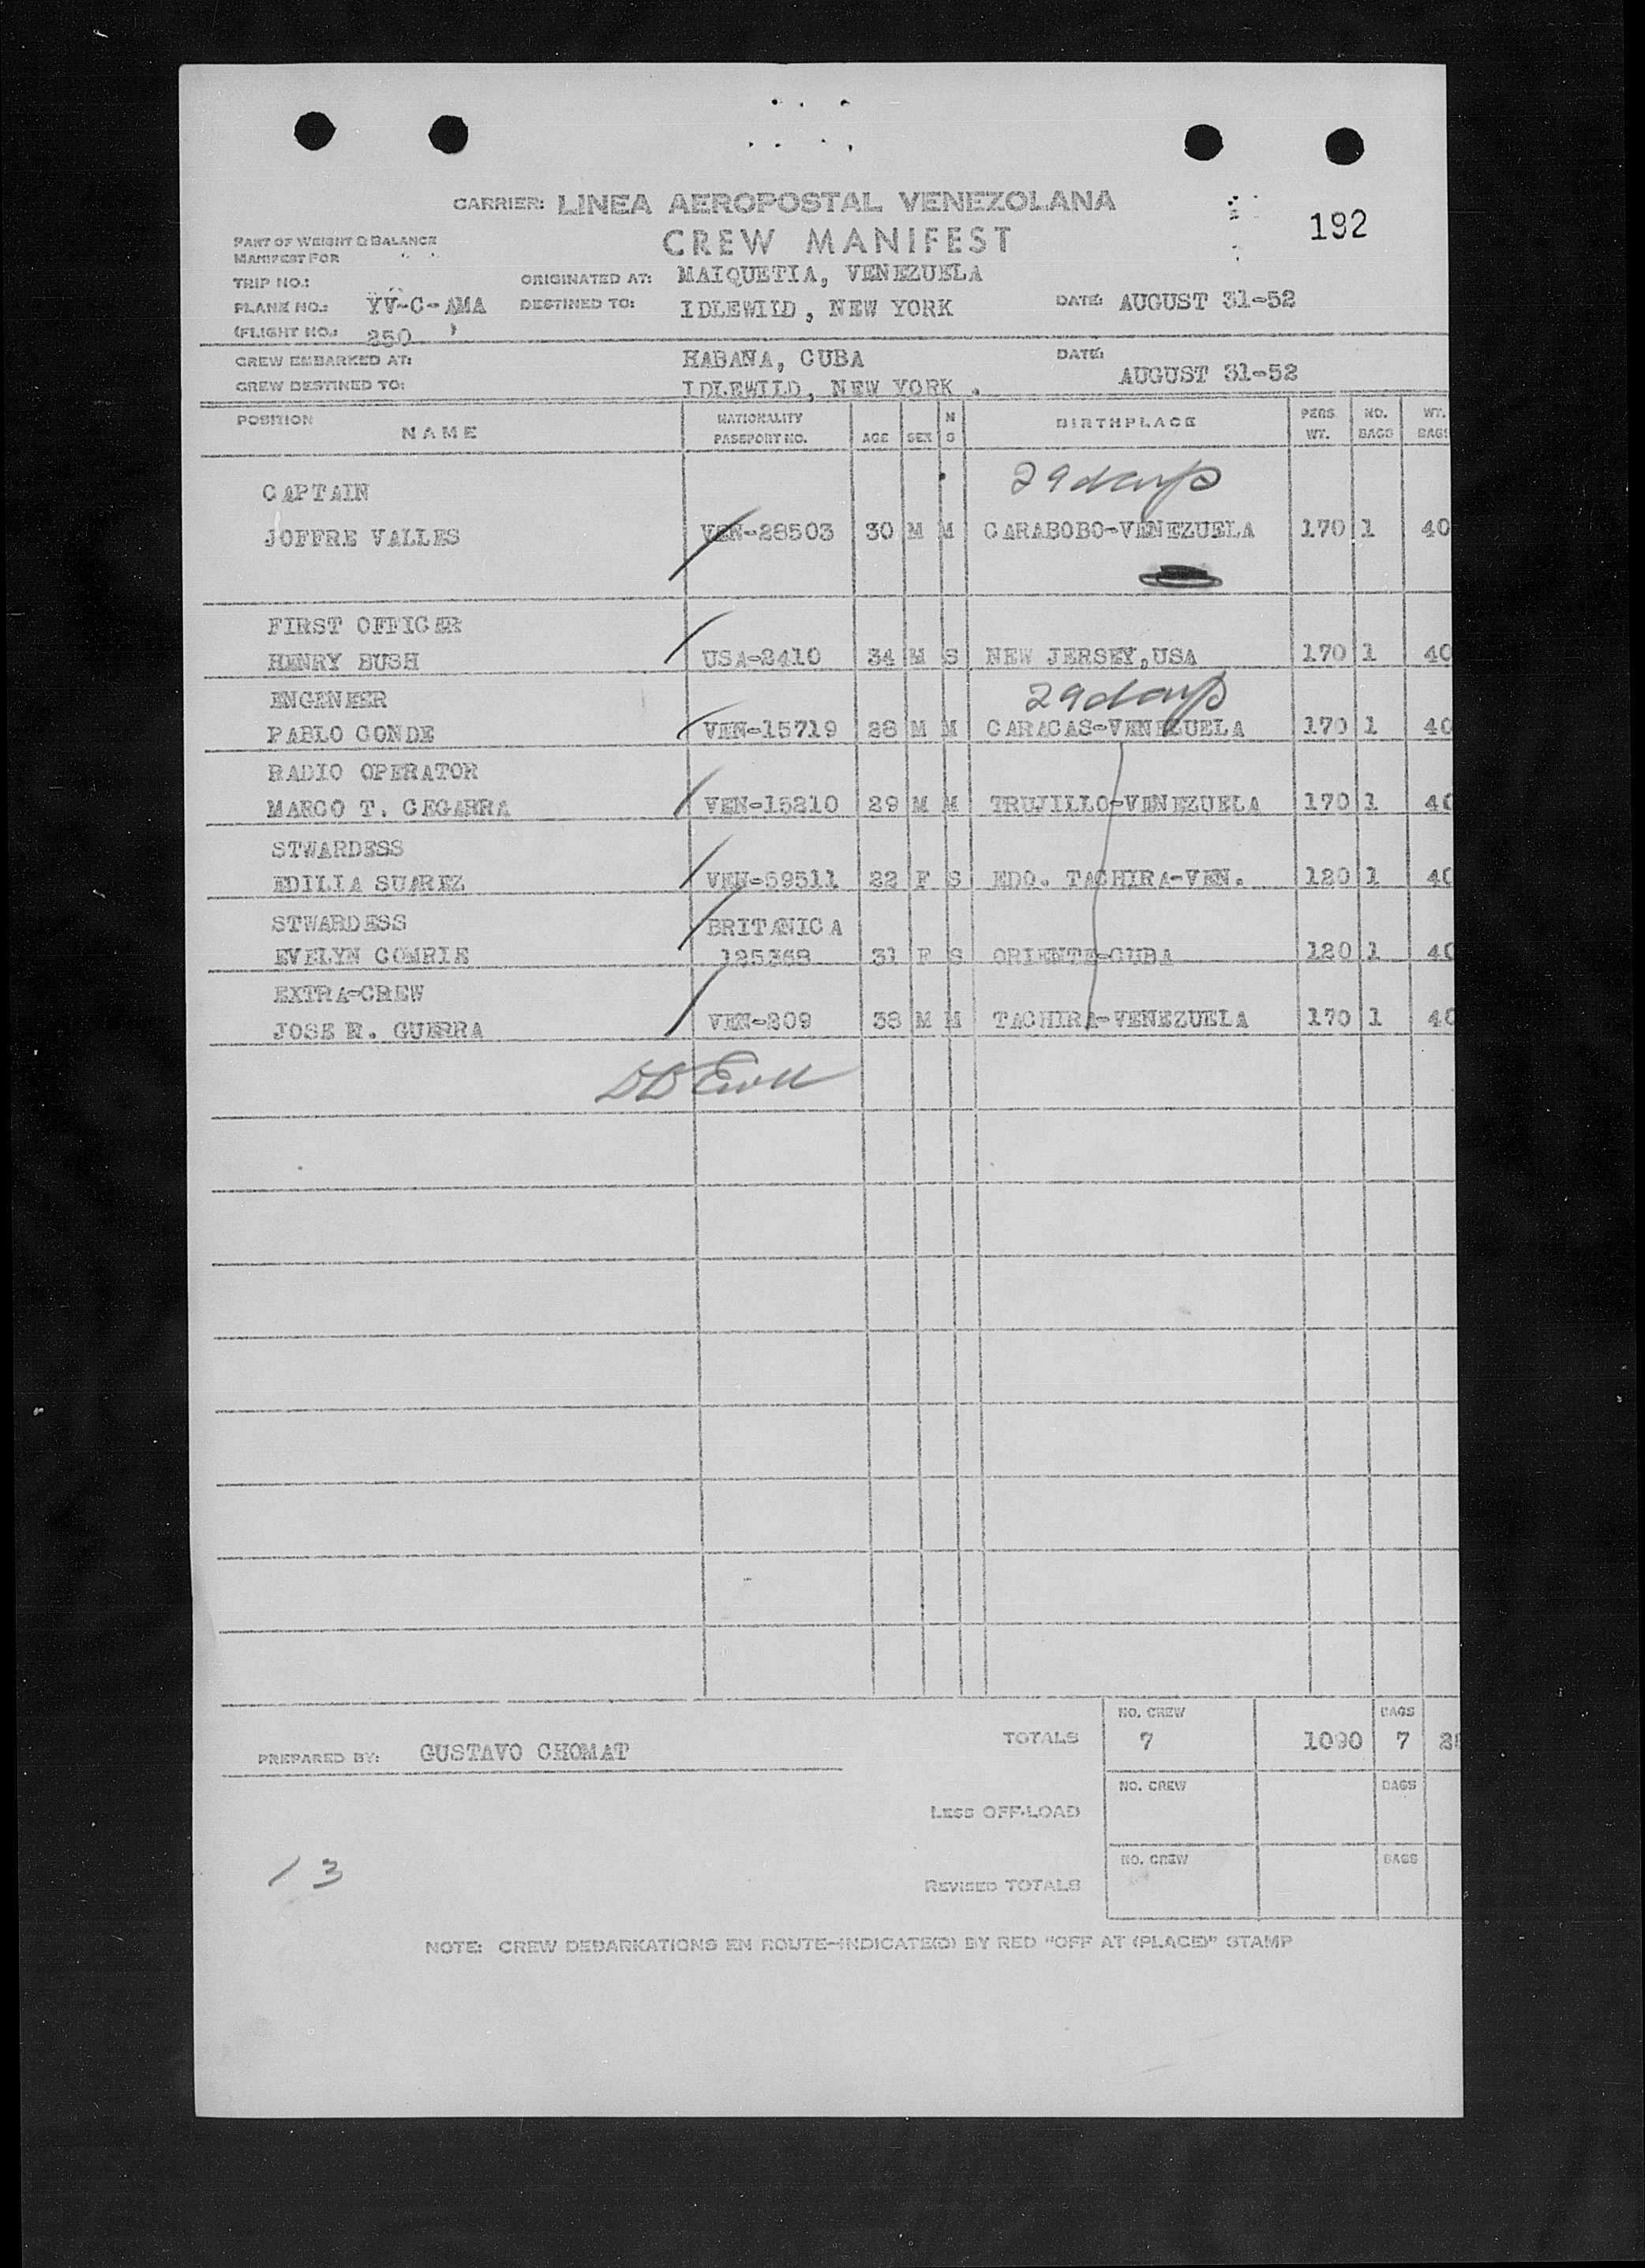 CARRIER: LINEA AEROPOSTAL VENEZOLANA
192
CREW MANIFEST
PART OF WEIGHT & BALANCE
MANIFEST FOR
TRIP NO.: ORIGINATED AT: MAIQUETIA, VENEZUELA
PLANE NO.: YV-C-AMA DESTINED TO: IDLEWILD, NEW YORK DATE: AUGUST 31-52
(FLIGHT NO.: 250 )
CREW EMBARKED AT: HABANA, CUBA DATE: AUGUST 31-52
CREW DESTINED TO: IDLEWILD, NEW YORK .
POSITION NAME NATIONALITY PASSPORT NO. AGE SEX M S BIRTHPLACE PERS. WT. NO. BAGS WT. BAGS
CAPTAIN 29 days
JOFFRE VALLES VEN-28503 30 M M CARABOBO-VENEZUELA 170 1 40
FIRST OFFICER
HENRY BUSH USA-2410 34 M S NEW JERSEY,USA 170 1 40
ENGENEER 29 days
PABLO CONDE VEN-15719 28 M M CARACAS-VENEZUELA 170 1 40
RADIO OPERATOR
MARCO T. CEGARRA VEN-15210 29 M M TRUJILLO-VENEZUELA 170 1 40
STWARDESS
EDILIA SUAREZ VEN-59511 22 F S EDO. TACHIRA-VEN. 120 1 40
STWARDESS BRITANICA
EVELYN COMRIE 125368 31 F S ORIENTE-CUBA 120 1 40
EXTRA-CREW
JOSE R. GUERRA VEN-209 38 M M TACHIRA-VENEZUELA 170 1 40
NO. CREW BAGS
PREPARED BY: GUSTAVO CHOMAT TOTALS 7 1090 7
NO. CREW BAGS
LESS OFF-LOAD
NO. CREW BAGS
REVISED TOTALS
13
NOTE: CREW DEBARKATIONS EN ROUTE-INDICATE(D) BY RED "OFF AT (PLACE)" STAMP